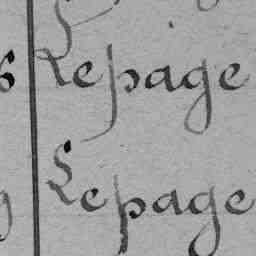 Lepage
Lepage